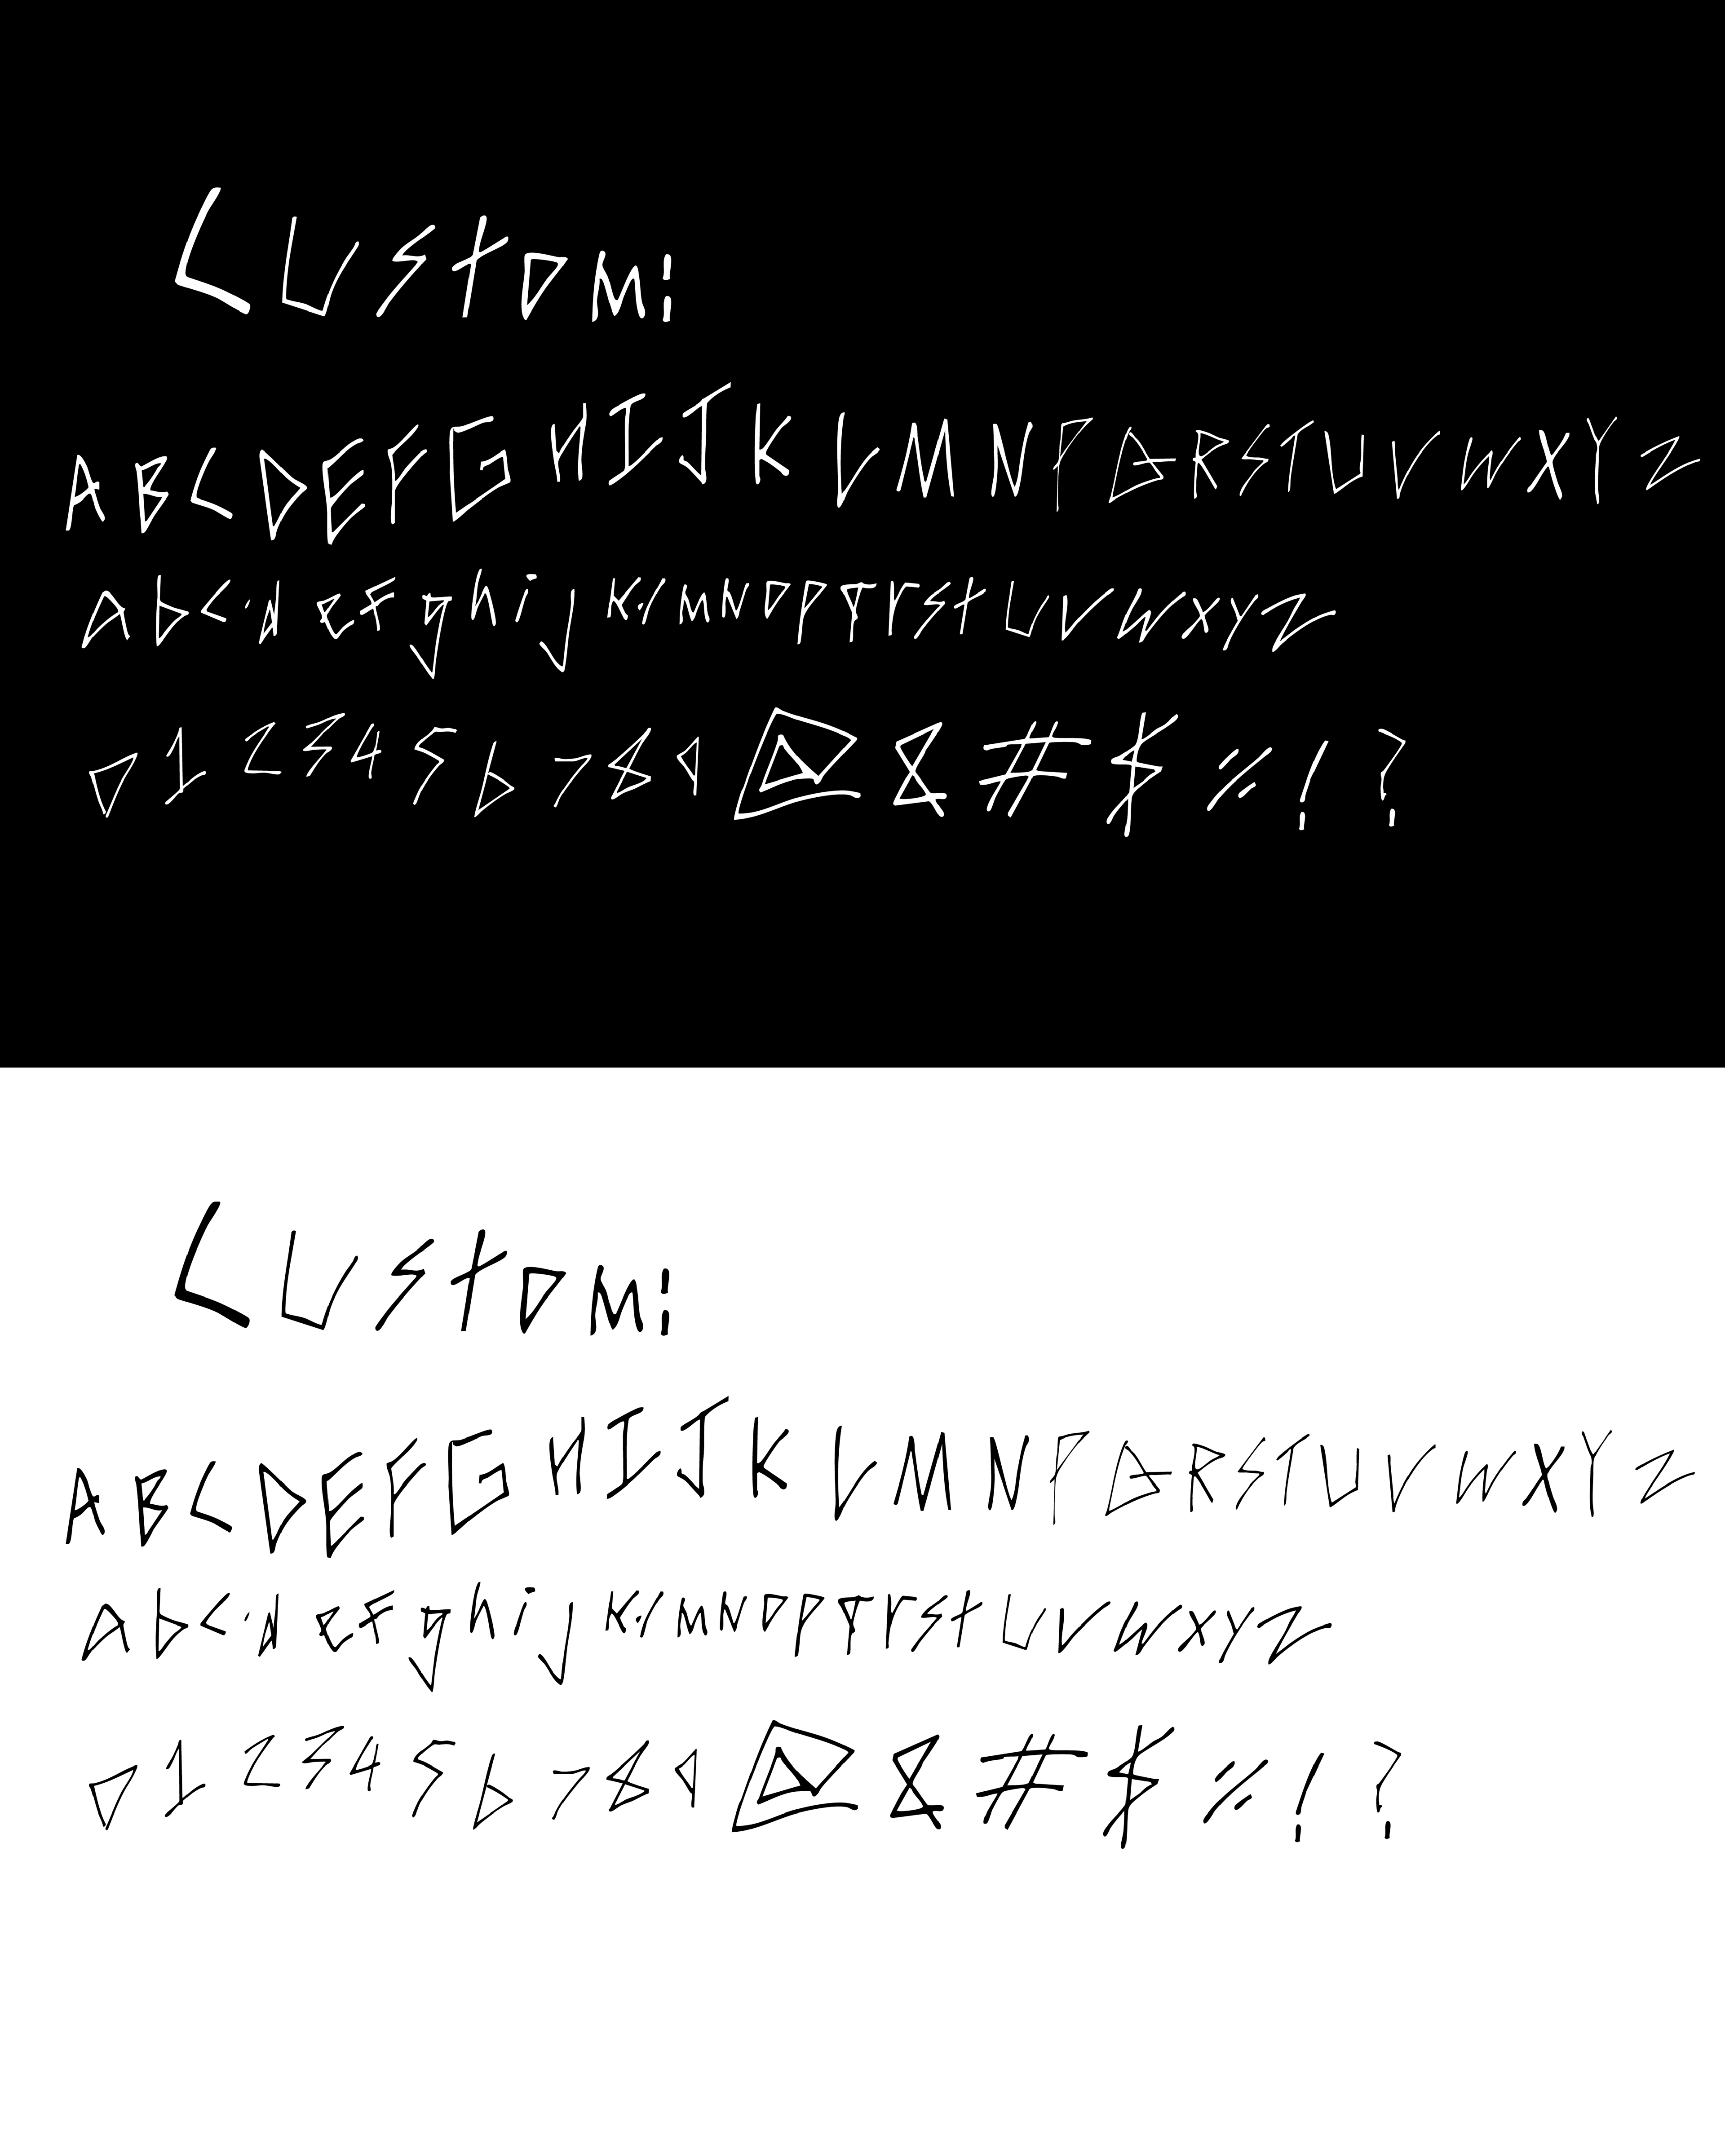 Custom:
ABCDEFGHIJKLMNPQRSTUVWXYZ
abcdefghijklmnopqrstuvwxyz
0123456789@&#$%!?
Custom:
ABCDEFGHIJKLMNPQRSTUVWXYZ
abcdefghijklmnopqrstuvwxyz
0123456789@&#$%!?